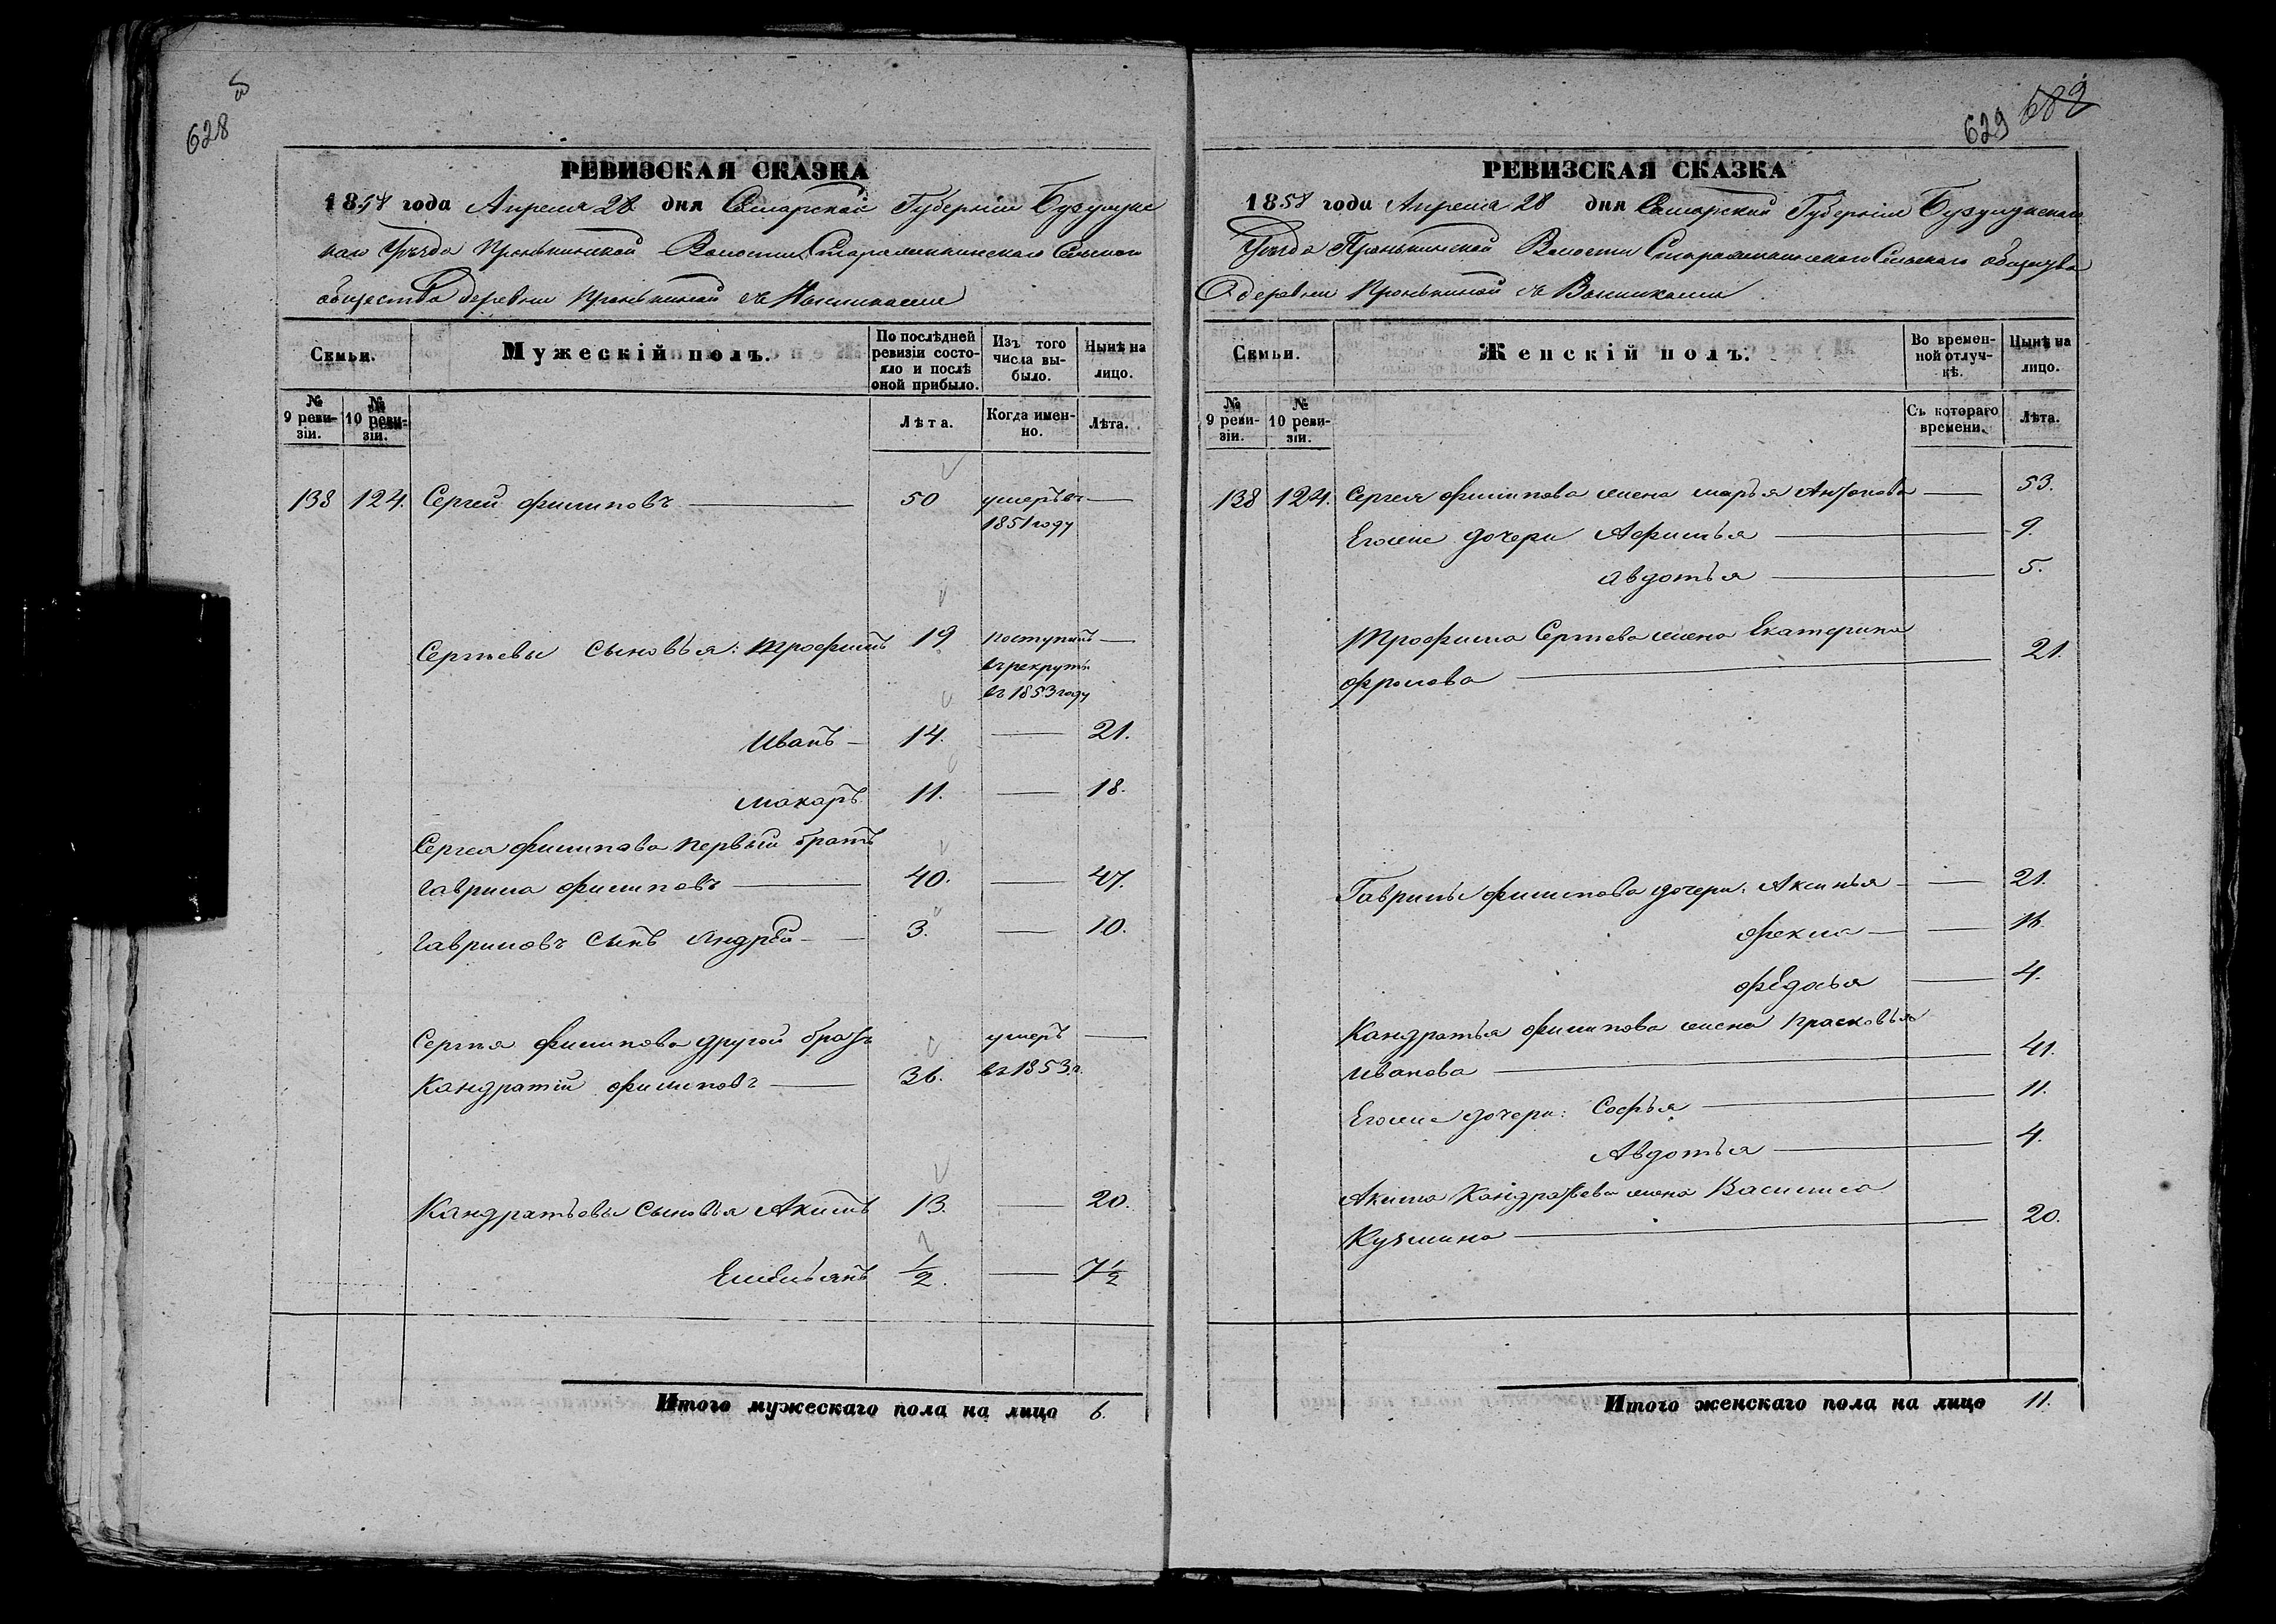 628
РЕВИЗСКАЯ СКАЗКА
1858 года Апреля 28 дня Самарской Губернiи Бузулукс
каго Уѣзда Пронькинской Волости Сельскаго
общества деревни Пронькиной
Семьи.
Мужескiй полъ.
По послѣдней ревизiи состо-
яло и послѣ оной прибыло.
Изъ того числа вы-
было.
Нынѣ на лицо.
№ 9 реви-
зiи.
№ 10 реви-
зiи.
Лѣта.
Когда имен-
но.
Лѣта.
138 124. Сергей Филиповъ 50 умеръ въ
1851 году
Сергѣевы сыновья: Трофимъ 19 поступилъ
въ рекруты
въ 1853 году
Иванъ 14. 21.
Макаръ 11. 18.
Сергея Филипова первый братъ
Гаврила Филиповъ 40. 47.
Гавриловъ сынъ Андрей 3. 10.
Сергѣя Филипова другой братъ умеръ
Кандратiй Филиповъ 36. въ 1853 г.
Кандратьевы сыновья Акимъ 13. 20.
Емельянъ 1/2. 7 1/2
Итого мужескаго пола на лицо 6.
629 682
РЕВИЗСКАЯ СКАЗКА
1858 года Апреля 28 дня Самарской Губернiи Бузулукскаго
Уѣзда Пронькинской Волости Сельскаго общества
деревни Пронькиной
Семьи.
Женскiй полъ.
Во времен-
ной отлуч-
кѣ.
Нынѣ на лицо.
№ 9 реви-
зiи.
№ 10 реви-
зiи.
Съ котораго времени.
Лѣта.
138 124. Сергея Филипова жена Марья Антонова 53.
Егоже дочери Афимья 9.
Авдотья 5.
Трофима Сергѣева жена Екатерина
Фролова 21.
Гаврилы Филипова дочери: Аксинья 21.
Фекла
Федосья 4.
Кандратья Филипова жена Прасковья
Иванова 41.
Егоже дочери: Софья 11.
Авдотья 4.
Акима Кандратьева жена Василиса
Кузмина 20.
Итого женскаго пола на лицо 11.